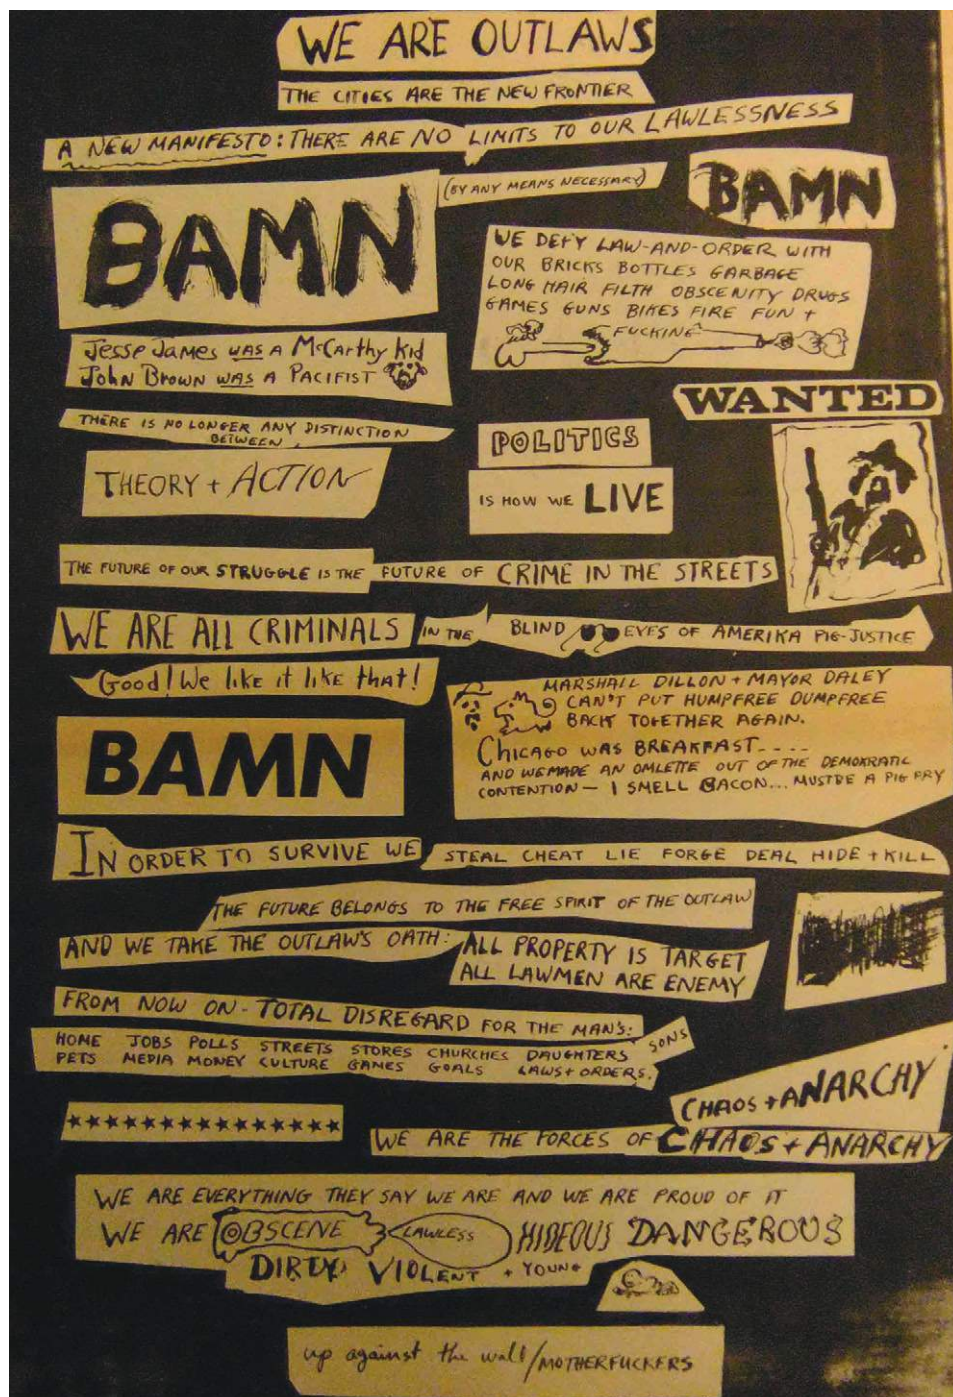 WE ARE OUTLAWS
THE CITIES ARE THE NEW FRONTIER
A NEW MANIFESTO: THERE ARE NO LIMITS TO OUR LAWLESSNESS
BAMN
(BY ANY MEANS NECESSARY)
BAMN
WE DEFY LAW-AND-ORDER WITH
OUR BRICKS BOTTLES GARBAGE
LONG HAIR FILTH OBSCENITY DRUGS
GAMES GUNS BIKES FIRE FUN +
FUCKING
Jesse James was a McCarthy Kid
John Brown was a Pacifist
WANTED
THERE IS NO LONGER ANY DISTINCTION
BETWEEN
THEORY + ACTION
POLITICS
IS HOW WE LIVE
THE FUTURE OF OUR STRUGGLE IS THE FUTURE OF CRIME IN THE STREETS
WE ARE ALL CRIMINALS IN THE BLIND EYES OF AMERIKA PIG-JUSTICE
Good! We like it like that!
MARSHALL DILLON + MAYOR DALEY
CAN'T PUT HUMPFREE DUMPFREE
BACK TOGETHER AGAIN.
CHICAGO WAS BREAKFAST....
AND WE MADE AN OMLETTE OUT OF THE DEMOKRATIC
CONTENTION — I SMELL BACON... MUSTBE A PIG FRY
BAMN
IN ORDER TO SURVIVE WE STEAL CHEAT LIE FORGE DEAL HIDE + KILL
THE FUTURE BELONGS TO THE FREE SPIRIT OF THE OUTLAW
AND WE TAKE THE OUTLAW'S OATH: ALL PROPERTY IS TARGET
ALL LAWMEN ARE ENEMY
FROM NOW ON - TOTAL DISREGARD FOR THE MAN'S:
HOME JOBS POLLS STREETS STORES CHURCHES DAUGHTERS SONS
PETS MEDIA MONEY CULTURE GAMES GOALS LAWS + ORDERS.
CHAOS + ANARCHY.
★★★★★★★★★★★★★★★
WE ARE THE FORCES OF CHAOS + ANARCHY
WE ARE EVERYTHING THEY SAY WE ARE AND WE ARE PROUD OF IT
WE ARE OBSCENE LAWLESS HIDEOUS DANGEROUS
DIRTY VIOLENT + YOUNG
up against the wall/MOTHERFUCKERS